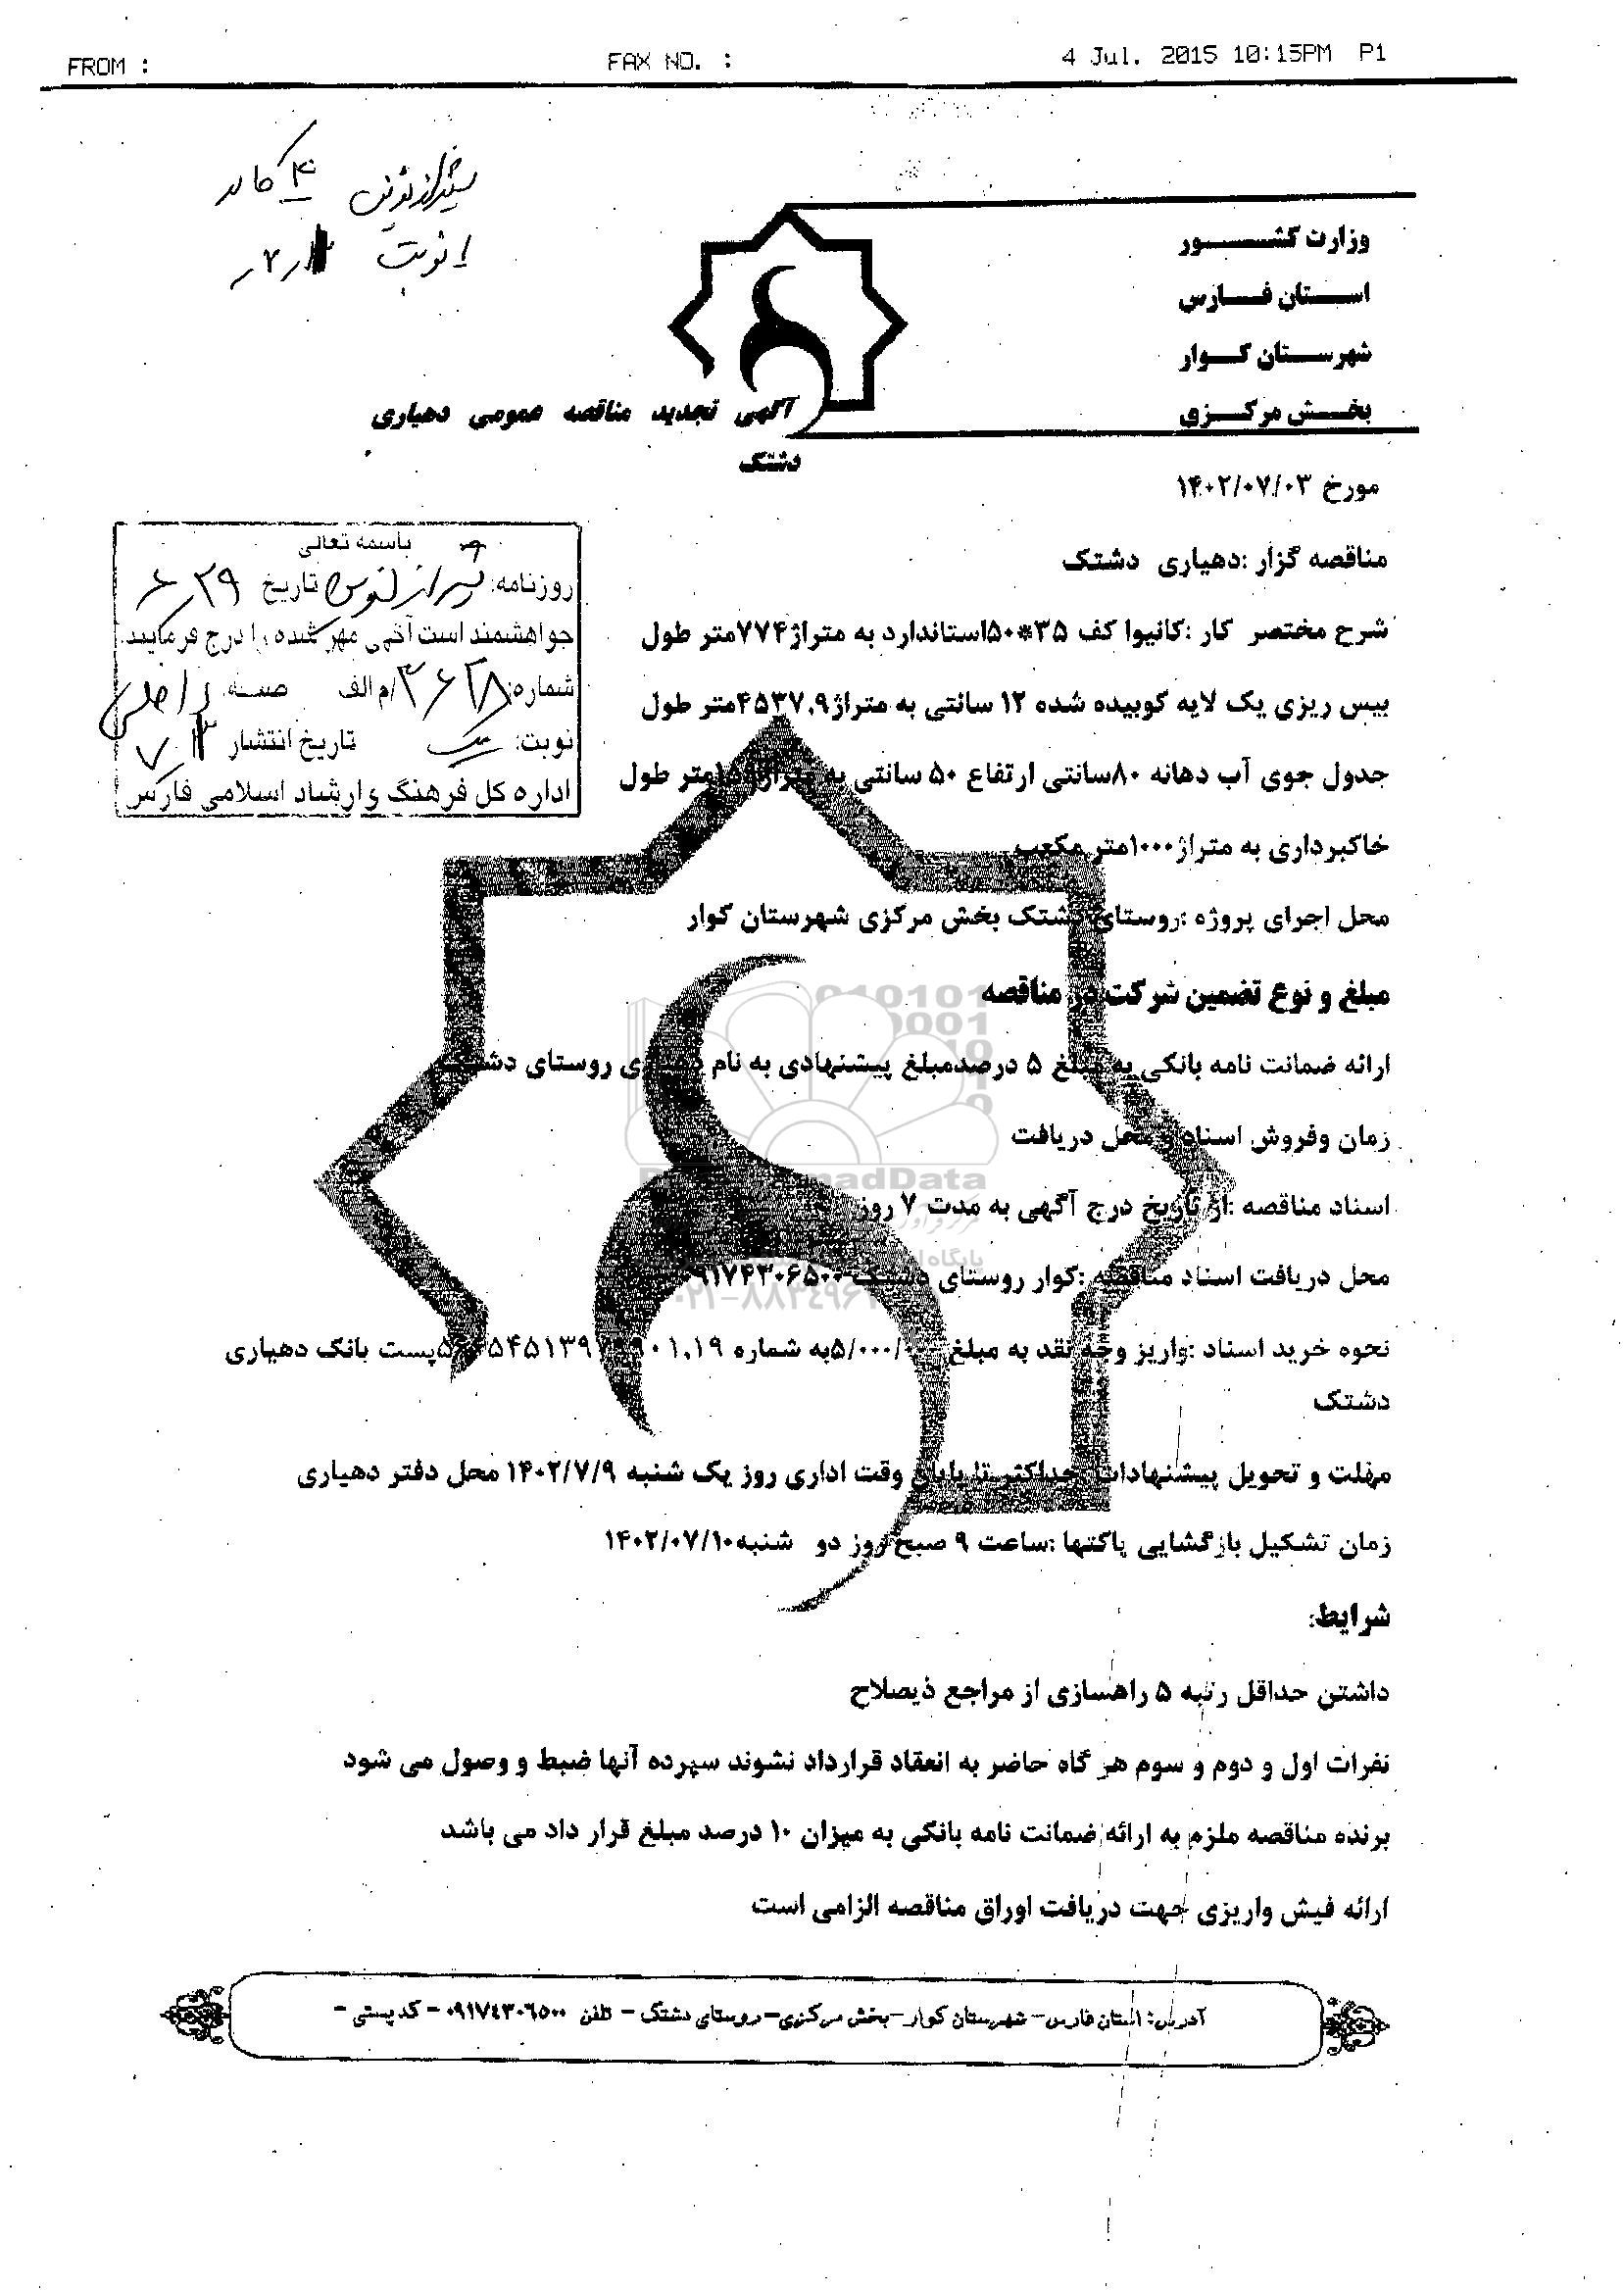 FROM :
FAX NO. :
4 Jul. 2015 10:15PM P1
شیرازنوین ۴ کادر
۱ نوبت
وزارت کشـــور
اســـتان فـــارس
شهرســـتان کـــوار
بخـــش مرکـــزی
آگهی تجدید مناقصه عمومی دهیاری
دشتک
مورخ ۱۴۰۲/۰۷/۰۳
باسمه تعالی
روزنامه: شیراز نوین تاریخ ۶،۲۹
خواهشمند است آگهی مهر شده را درج فرمایید.
شماره: ۳۶۲۸/م الف صفحه: داخلی
نوبت: یک تاریخ انتشار
اداره کل فرهنگ و ارشاد اسلامی فارس
مناقصه گزار :دهیاری دشتک
شرح مختصر کار :کانیوا کف ۳۵*۵۰استاندارد به متراژ۷۷۴متر طول
بیس ریزی یک لایه کوبیده شده ۱۲ سانتی به متراژ۴۵۳۷.۹متر طول
جدول جوی آب دهانه ۸۰سانتی ارتفاع ۵۰ سانتی به متراژ متر طول
خاکبرداری به متراژ۱۰۰۰متر مکعب
محل اجرای پروژه :روستای دشتک بخش مرکزی شهرستان کوار
مبلغ و نوع تضمین شرکت در مناقصه
ارائه ضمانت نامه بانکی به مبلغ ۵ درصدمبلغ پیشنهادی به نام دهیاری روستای دشتک
زمان وفروش اسناد و محل دریافت
اسناد مناقصه :از تاریخ درج آگهی به مدت ۷ روز
محل دریافت اسناد مناقصه :کوار روستای دشتک ۰۹۱۷۴۳۰۶۵۰۰
نحوه خرید اسناد :واریز وجه نقد به مبلغ ۵/۰۰۰/۰۰۰به شماره پست بانک دهیاری
دشتک
مهلت و تحویل پیشنهادات :حداکثر تا پایان وقت اداری روز یک شنبه ۱۴۰۲/۷/۹ محل دفتر دهیاری
زمان تشکیل بازگشایی پاکتها :ساعت ۹ صبح روز دو شنبه۱۴۰۲/۰۷/۱۰
شرایط:
داشتن حداقل رتبه ۵ راهسازی از مراجع ذیصلاح
نفرات اول و دوم و سوم هر گاه حاضر به انعقاد قرارداد نشوند سپرده آنها ضبط و وصول می شود
برنده مناقصه ملزم به ارائه ضمانت نامه بانکی به میزان ۱۰ درصد مبلغ قرار داد می باشد
ارائه فیش واریزی جهت دریافت اوراق مناقصه الزامی است
آدرس: استان فارس- شهرستان کوار-بخش مرکزی-روستای دشتک - تلفن ۰۹۱۷۴۳۰۶۵۰۰ - کدپستی -